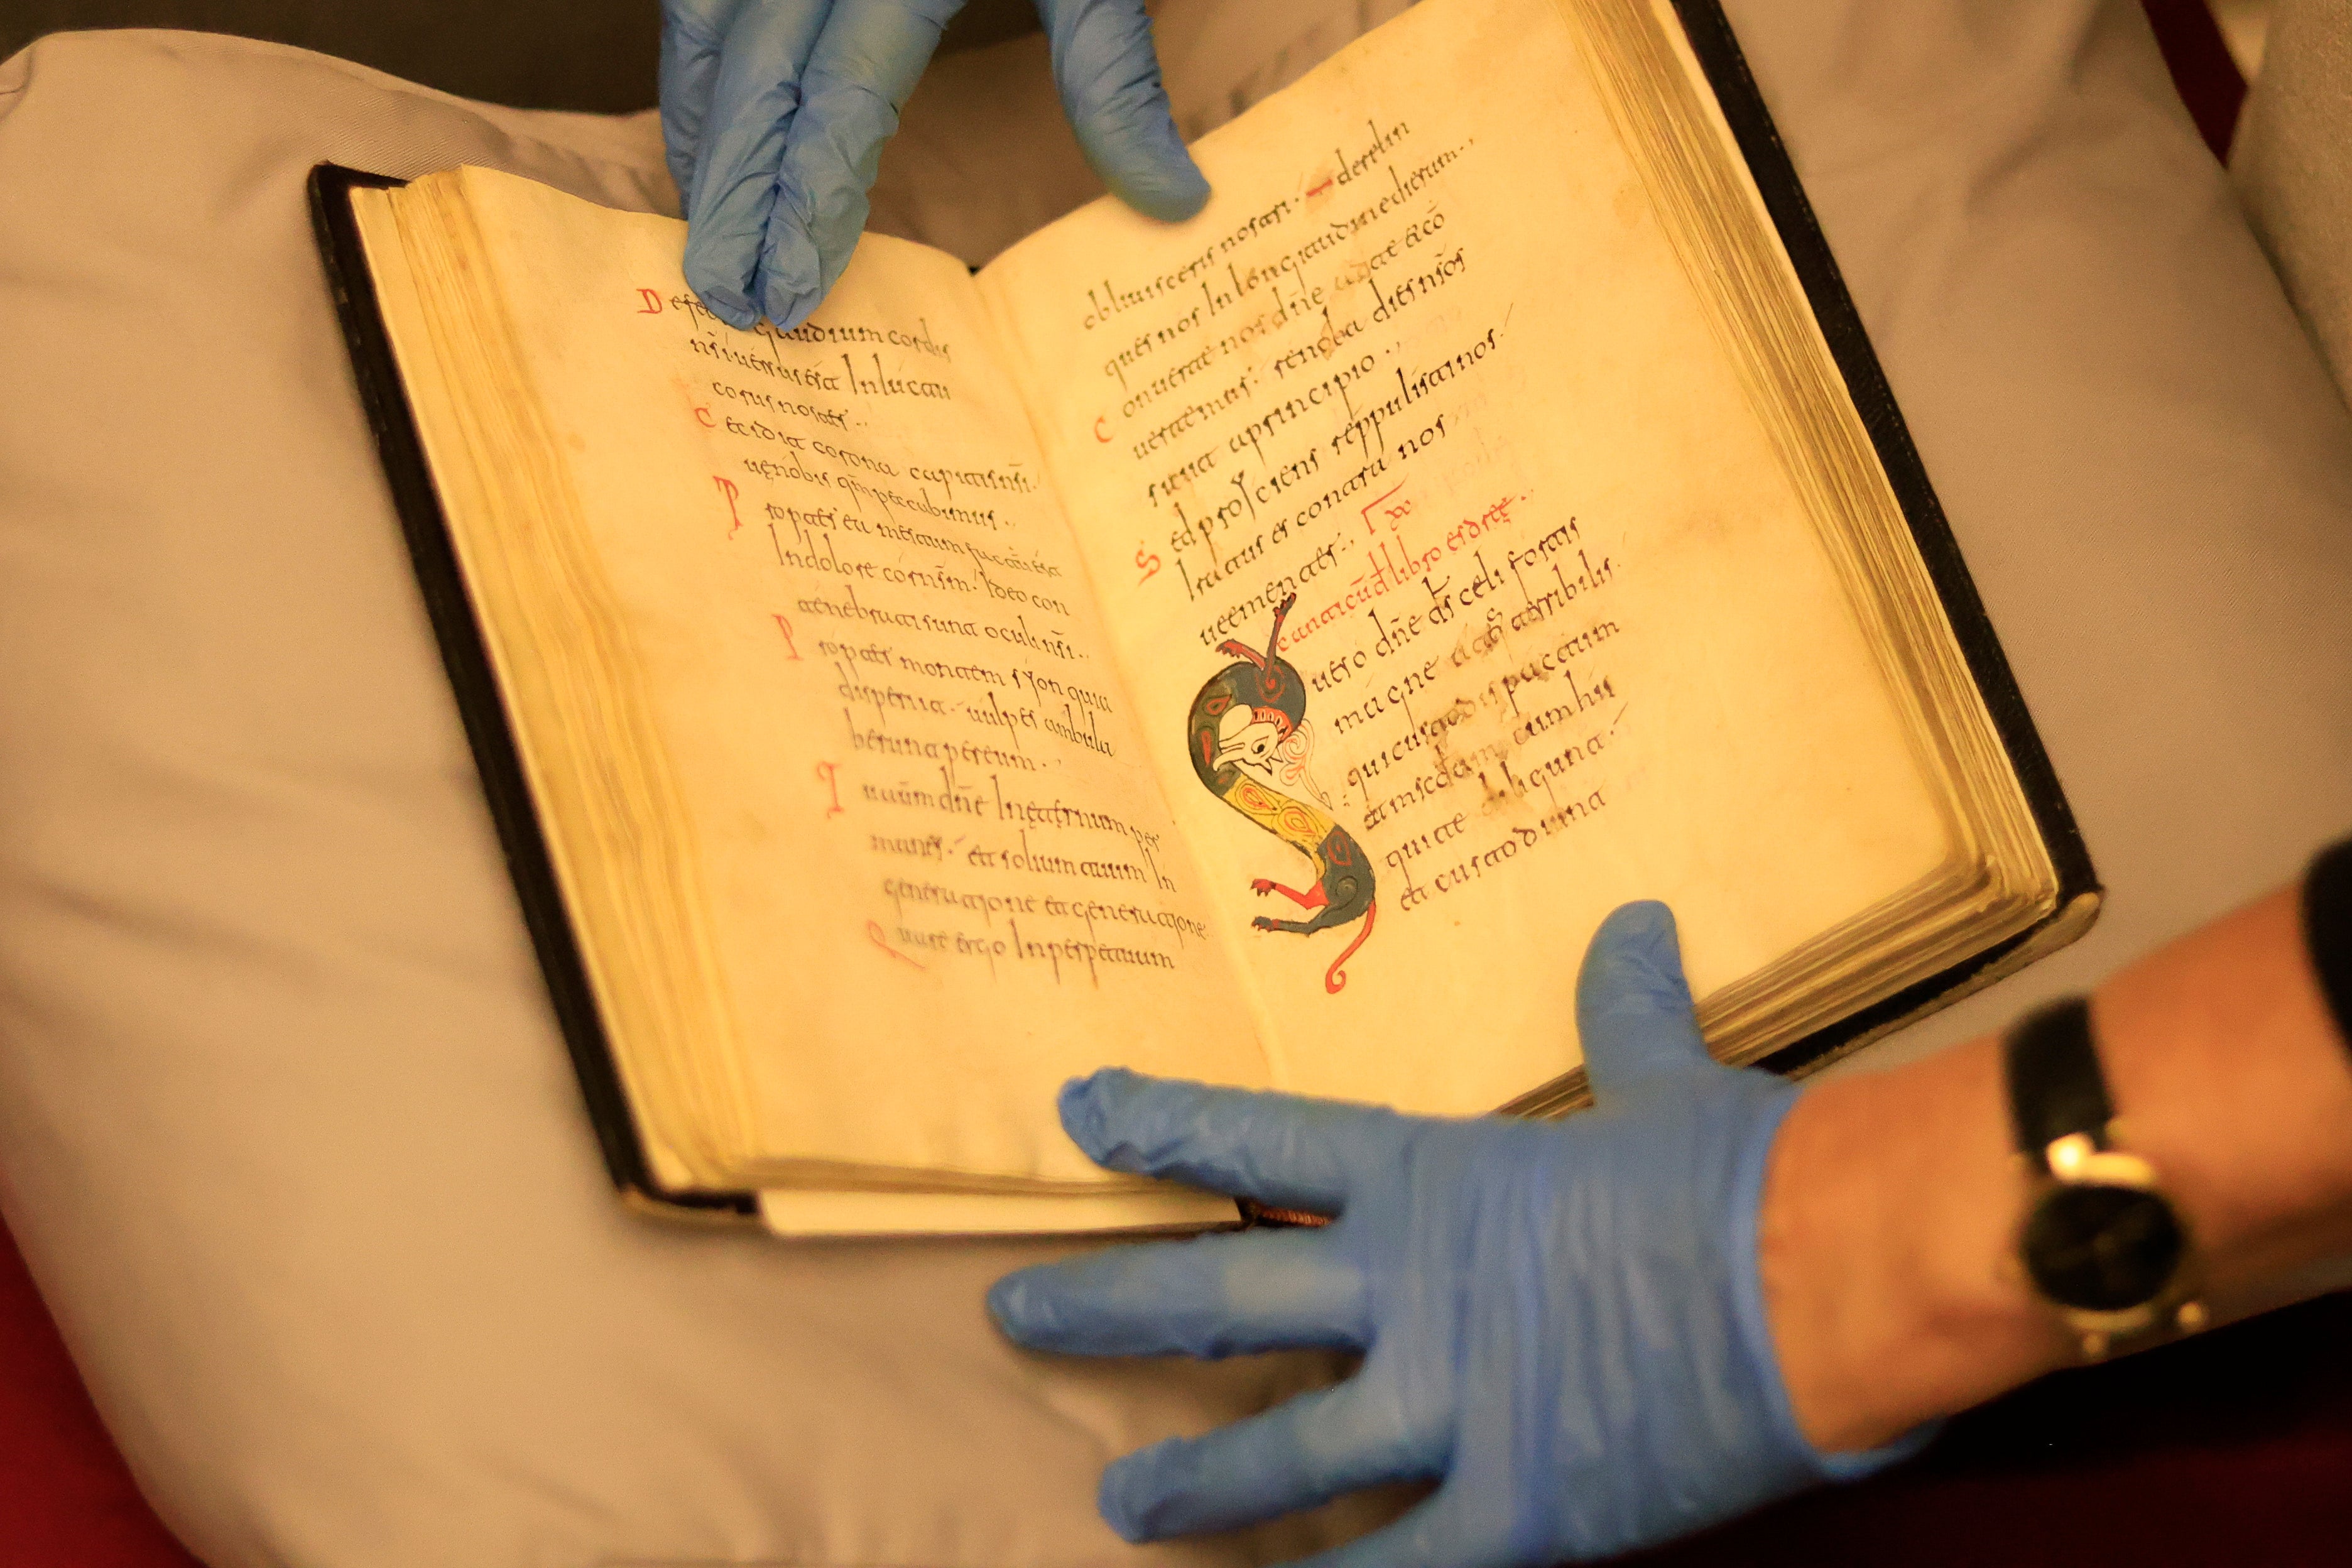 Defec gaudium cordis
n̄si uersus est In luctu
corus noster..
Cecidit corona capitis n̄si.
ue nobis qm̄ peccabimus..
Propter ea mestum factū est
In dolore cor ns̄m. Ideo con
tenebrati sunt oculi n̄si..
Propter montem syon quia
disperiit. uulpes ambula
berunt per eum.
Tu autm̄ dn̄e In eternum per
manes. et solium tuum In
generatjone et generatjone
Quare ergo In perpetuum
obliuisceris nostri. derelin
ques nos In longitudine dierum.,
Conuerte nos dn̄e ad te et cō
uertemur. renoba dies ns̄os
sicut a principio.,
Sed projciens reppulisti nos.
Iratus es contra nos
ueementer.,
canticū d̄ libro esdre.
Queso dn̄e ds̄ celi fortis
magne atq terribilis.
qui custodis pactum
et miscdam cum his
qui te diligunt.
et custodiunt